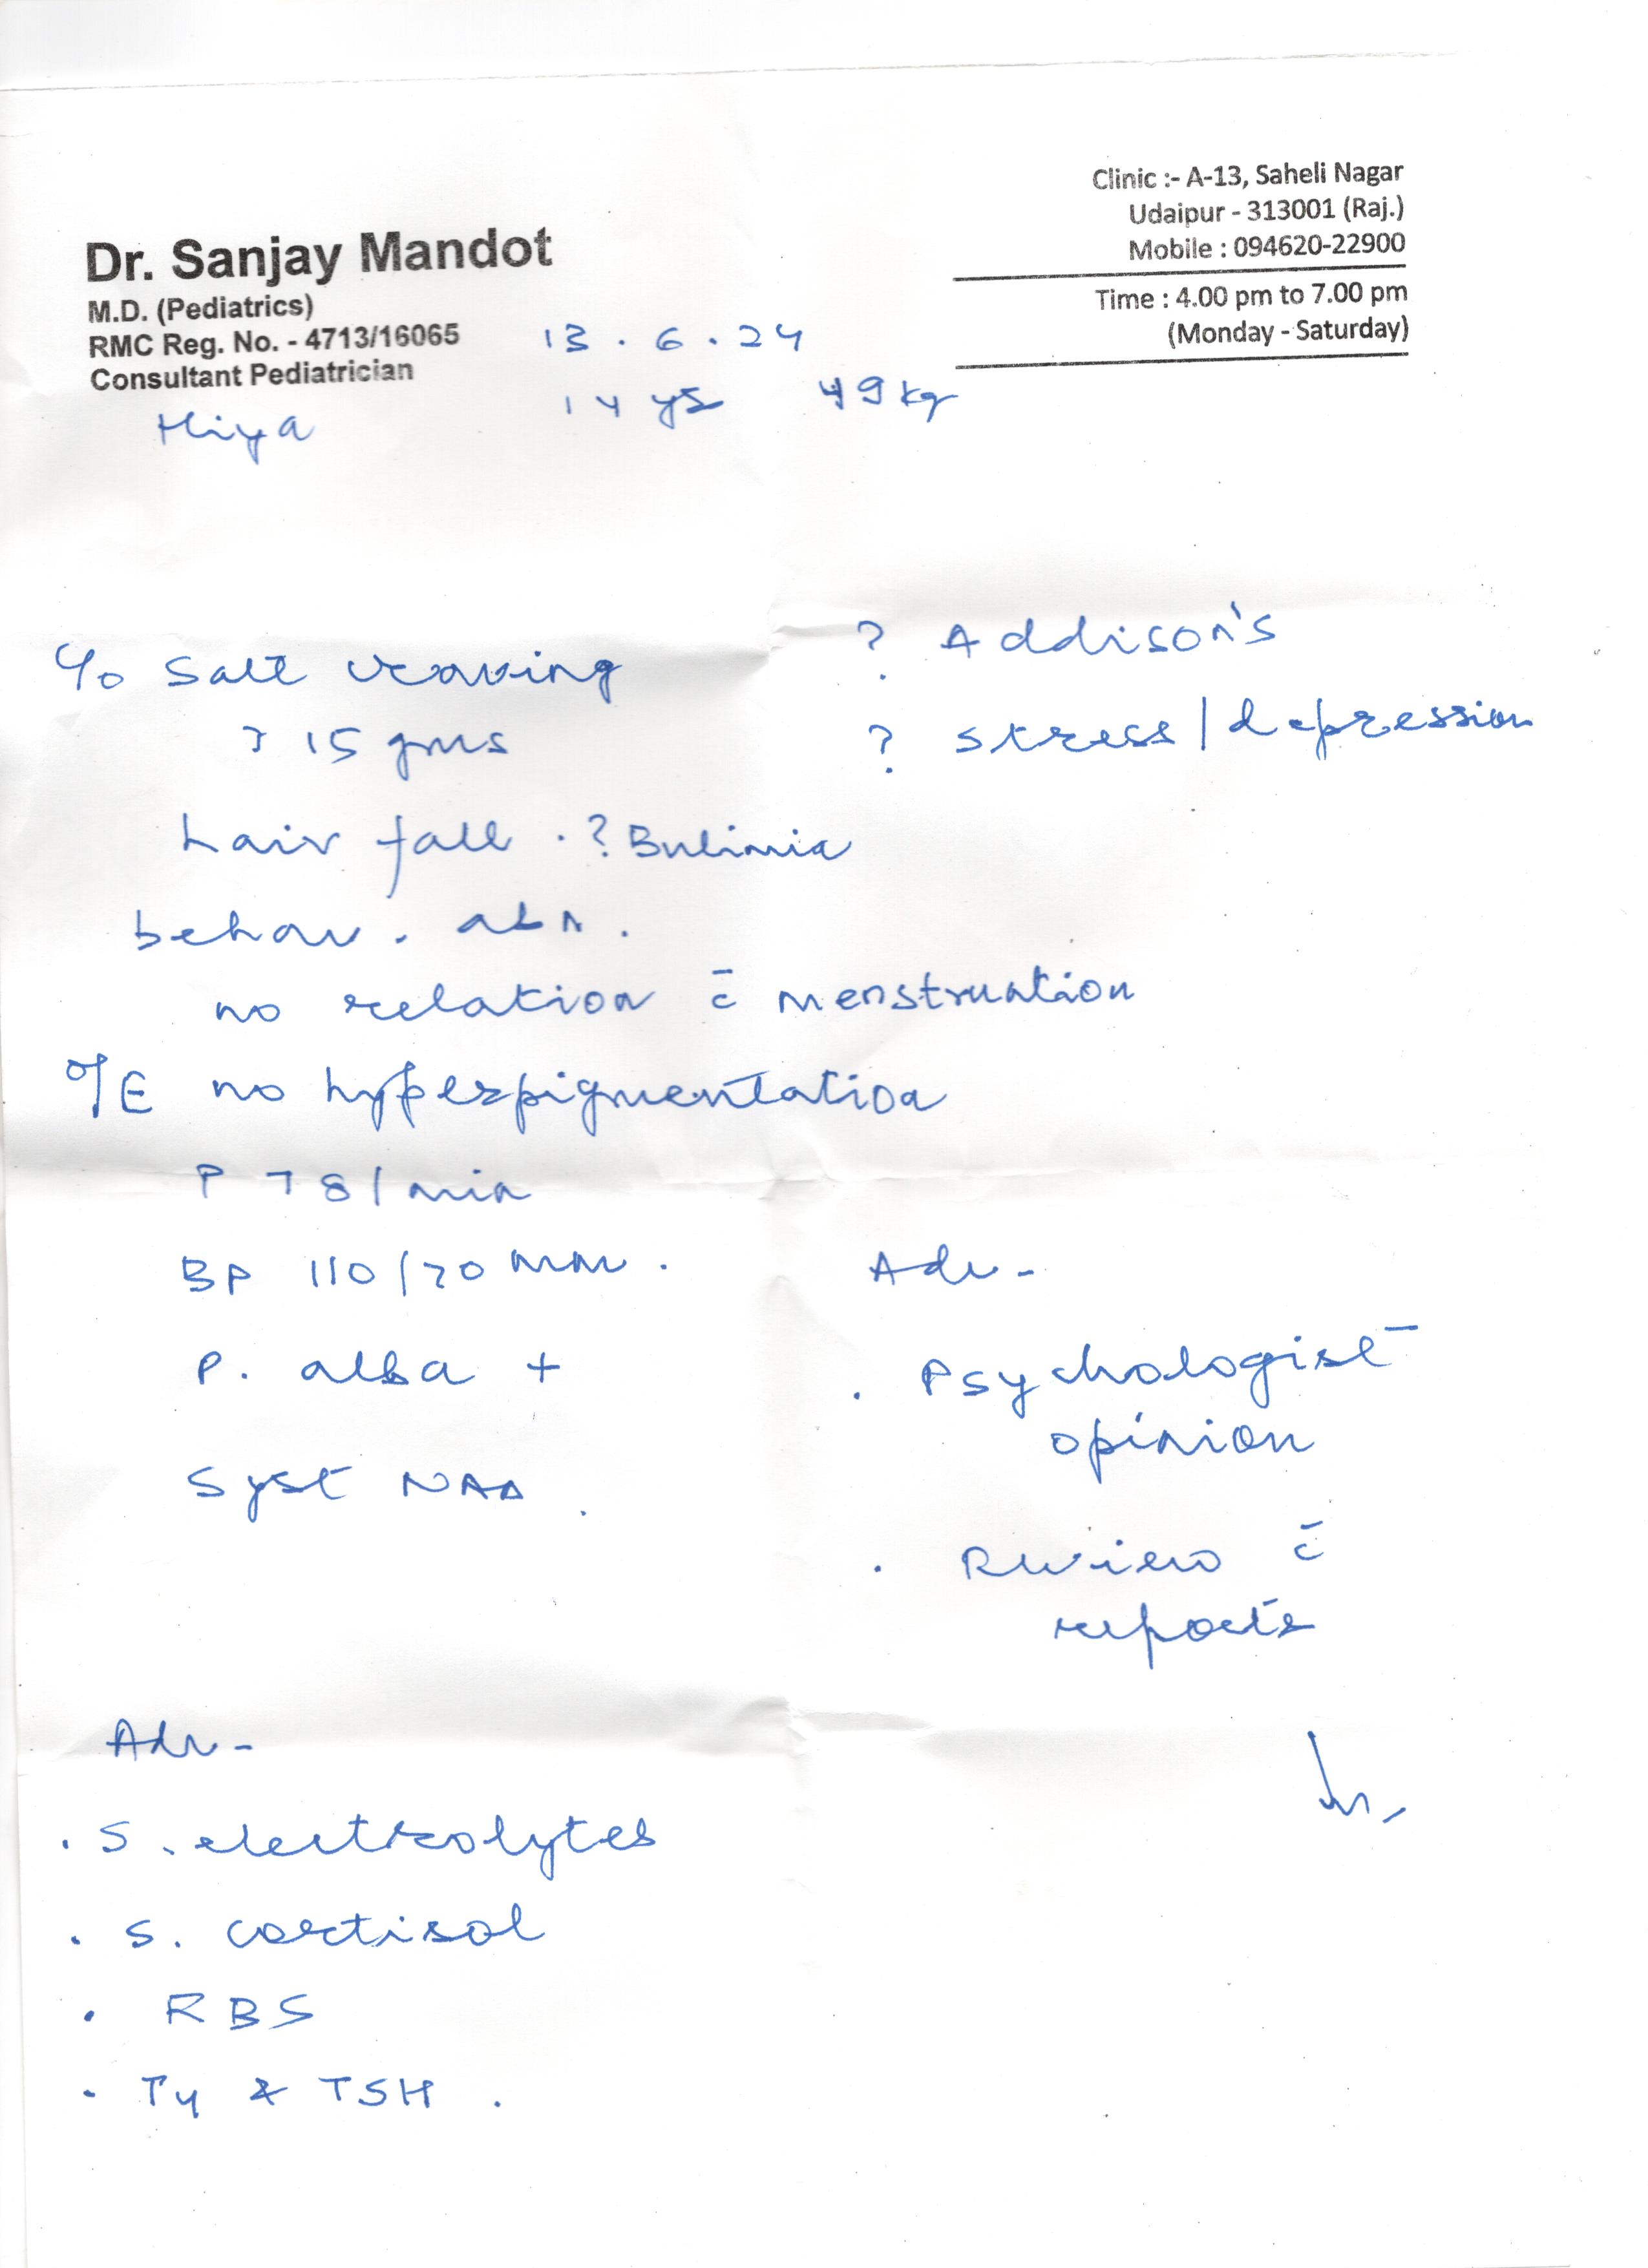 Dr. Sanjay Mandot
M.D. (Pediatrics)
RMC Reg. No. - 4713/16065
Consultant Pediatrician
Clinic :- A-13, Saheli Nagar
Udaipur - 313001 (Raj.)
Mobile : 094620-22900
Time : 4.00 pm to 7.00 pm
(Monday - Saturday)
13.6.24
Hiya 14 yrs 49 kg
C/o Salt craving
? 15 gms
hair fall . ? Bulimia
behav. abn.
no relation c̄ menstruation
? Addison's
? stress/depression
O/E no hyperpigmentation
P 78/min
BP 110/70 mm.
P. alba +
Syst NAD.
Adv-
. Psychologist
opinion
. Review c̄
reports
Adv-
. S. electrolytes
. S. cortisol
. RBS
. T4 & TSH.